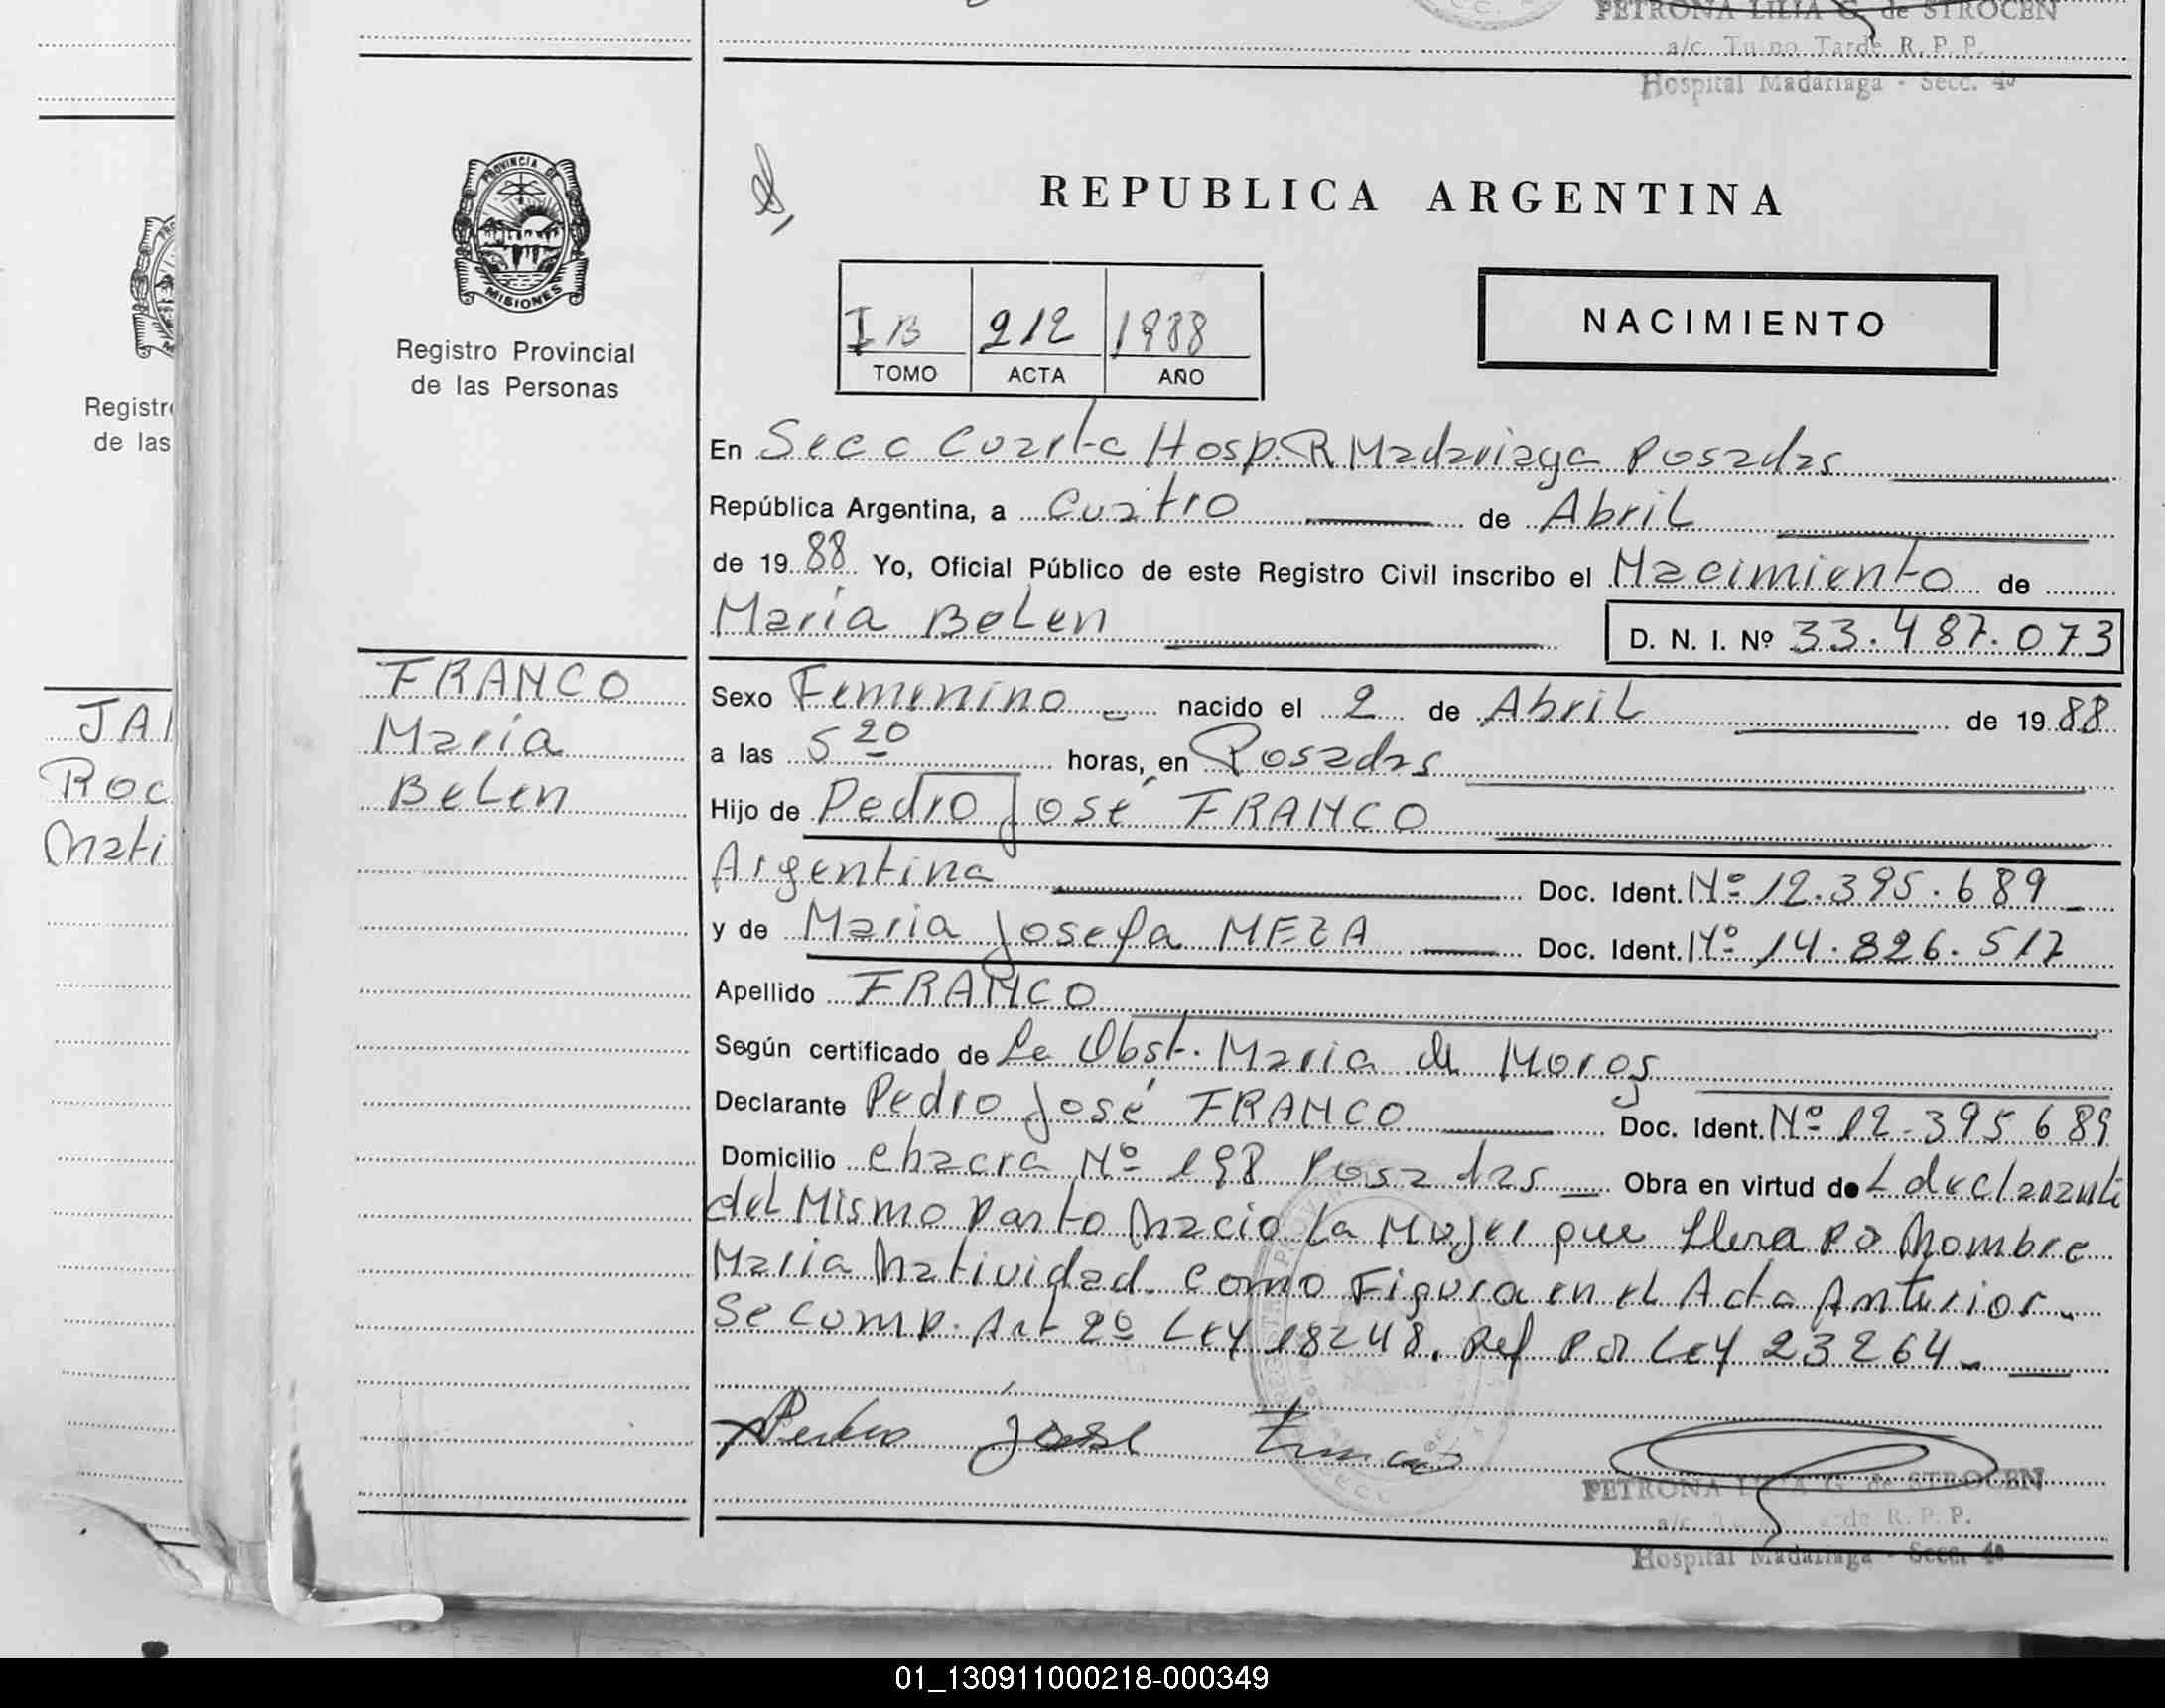 PETRONA LILIA G. de STROCEN
a/c. Turno Tarde R. P. P.
Hospital Madariaga - Secc. 4ª
PROVINCIA DE
MISIONES
Registro Provincial
de las Personas
REPUBLICA ARGENTINA
I B 212 1988
TOMO ACTA AÑO
NACIMIENTO
En Secc Cuarta Hosp. R Madariaga Posadas
República Argentina, a Cuatro de Abril
de 1988 Yo, Oficial Público de este Registro Civil inscribo el Nacimiento de
Maria Belen D. N. I. Nº 33.487.073
FRANCO
Maria
Belen
Sexo Femenino nacido el 2 de Abril de 1988
a las 5 20 horas, en Posadas
Hijo de Pedro José FRANCO
Argentina Doc. Ident. Nº 12.395.689
y de Maria Josefa MEZA Doc. Ident. Nº 14.826.517
Apellido FRANCO
Según certificado de La Obst. Maria de
Declarante Pedro José FRANCO Doc. Ident. Nº 12.395 689
Domicilio Chacra Nº 198 Posadas Obra en virtud de L declarante
del Mismo Parto Nacio La Mujer que Lleva Por Nombre
Maria Natividad. Como Figura en el Acta Anterior.
Se Comp. Art 2º Ley 18248. Ref Por Ley 23264
Pedro José Franco
PETRONA LILIA G. de STROCEN
a/c de R. P. P.
Hospital Madariaga - Secc. 4ª
Registr
de las
JA
Roc
Nati
01_130911000218-000349